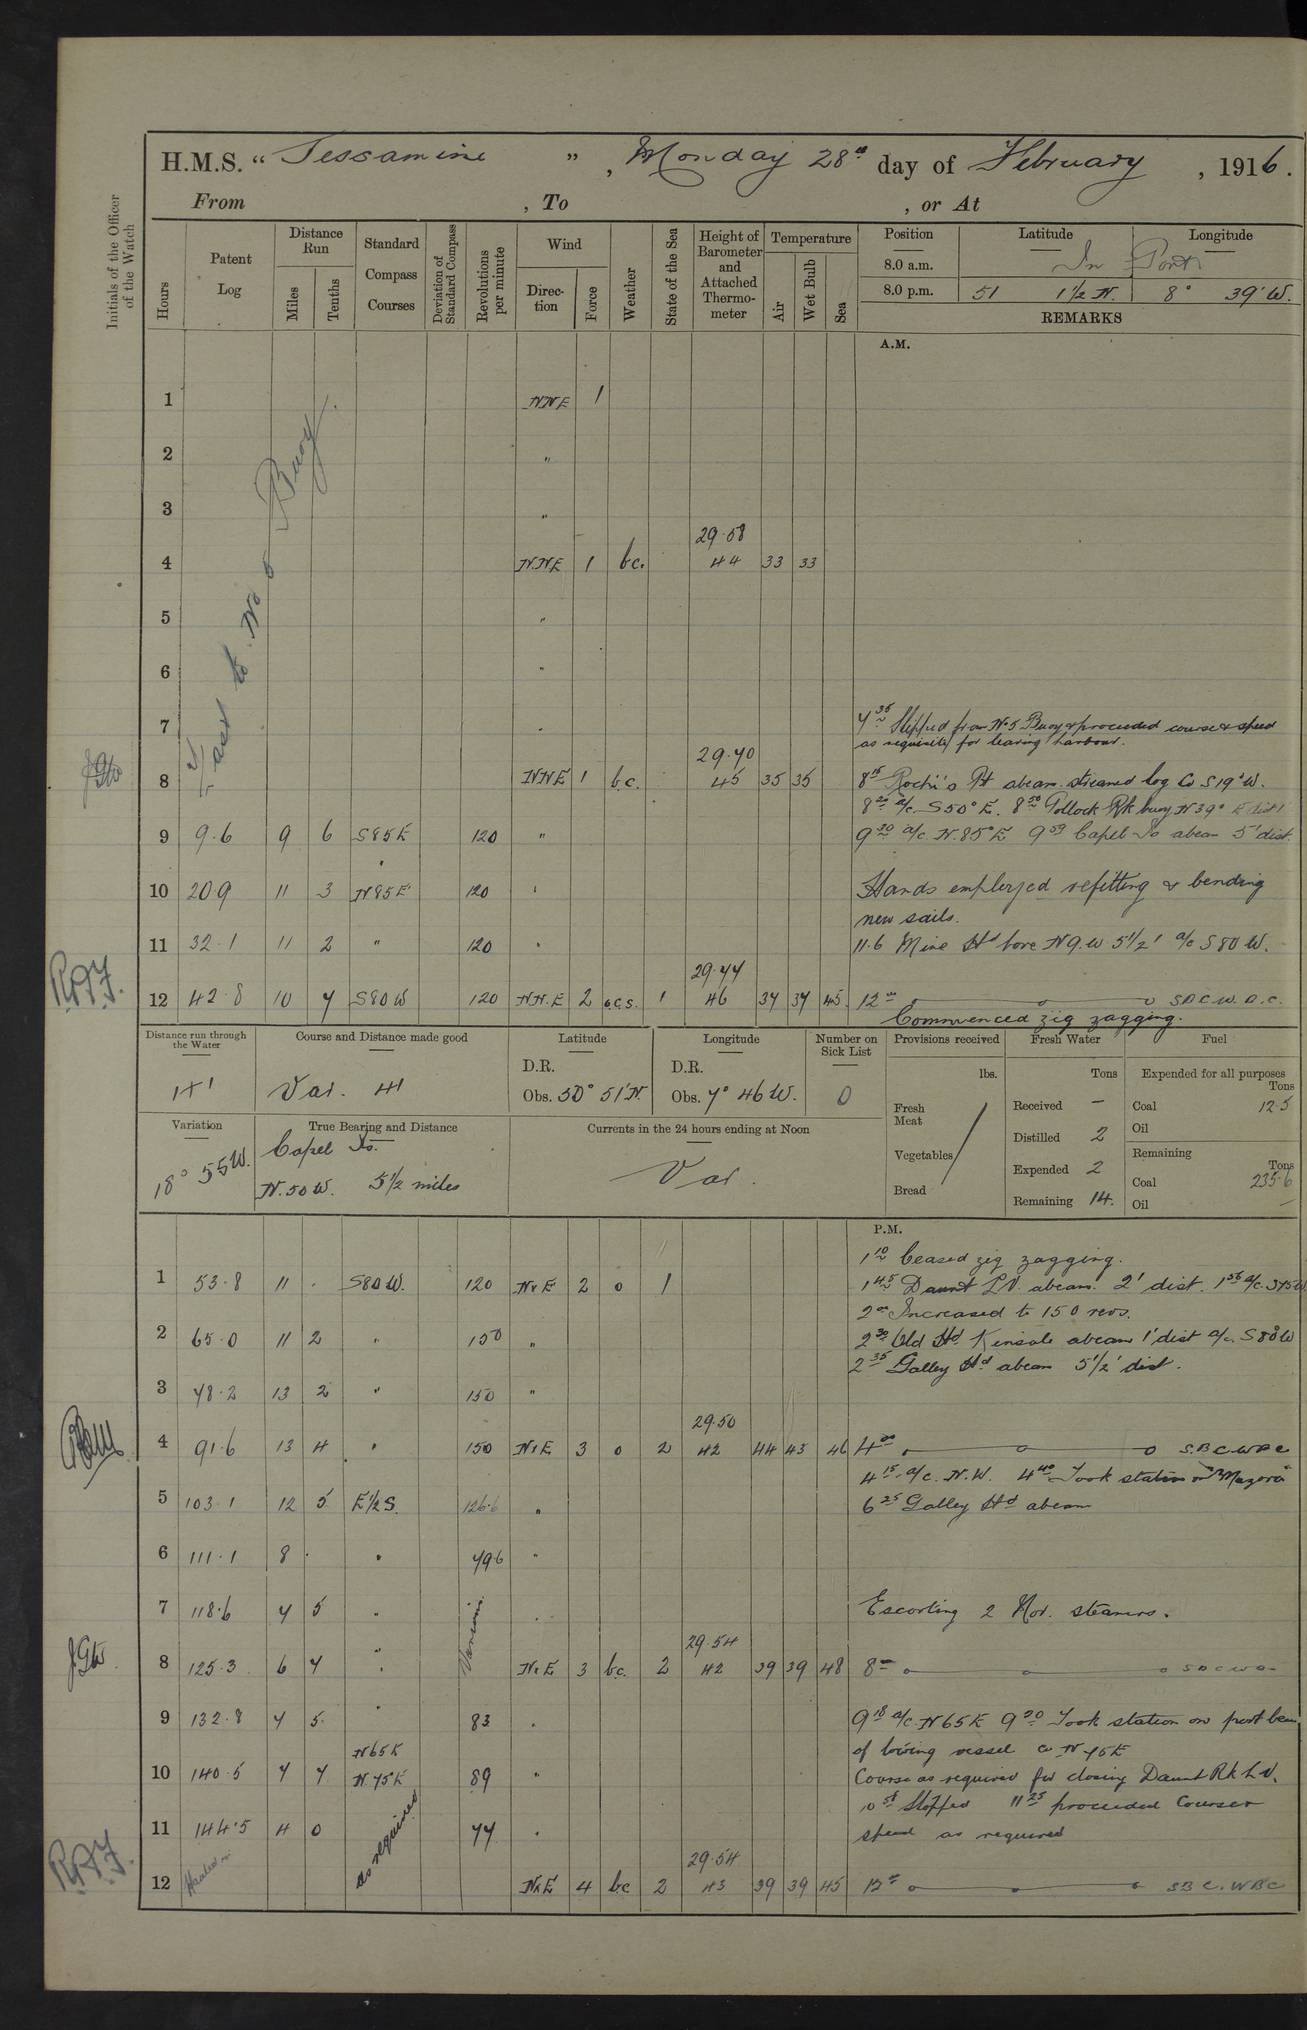 H.M.S. “ Jessamine ” , Monday 28th day of February , 1916 .
From , To , or At
Initials of the Officer of the Watch
Hours
Patent Log
Distance Run
Miles
Tenths
Standard Compass Courses
Deviation of Standard Compass
Revolutions per minute
Wind
Direc-tion
Force
Weather
State of the Sea
Height of Barometer and Attached Thermo-meter
Temperature
Air
Wet Bulb
Sea
Position Latitude Longitude
8.0 a.m. In Port
8.0 p.m. 51 1½ N. 8° 39' W.
REMARKS
A.M.
Fast to No 5 Buoy.
1 NNE 1
2 "
3 "
29.58
4 NNE 1 bc. 44 33 33
5 "
6 "
7 "
7 35 Slipped from No 5 Buoy & proceeded course & speed
as requisite for leaving harbour.
29.70
8 NNE 1 bc. 45 35 35
8 15 Roche's Pt abeam. streamed log Co S19°W.
8 20 a/c S50°E. 8 50 Pollock Rk buoy N39° E dist 1
9 9.6 9 6 S85E 120 "
9 30 a/c N.85°E 9 59 Capel Is abeam 5' dist.
10 20.9 11 3 N85E 120 "
Hands employed refitting & bending
new sails.
11 32.1 11 2 " 120 "
11.6 Mine Hd bore N9.W 5½' a/c S80 W.
29.44
12 42.8 10 7 S80W 120 NN.E 2 o.c.s. 1 46 37 37 45
12 S.B.C.W.B.C.
Commenced zig zagging.
Distance run through the Water
41
Course and Distance made good
Var. 41
Latitude
D.R.
Obs. 50° 51'N.
Longitude
D.R.
Obs. 7° 46 W.
Number on Sick List
0
Provisions received
lbs.
Fresh Meat
Vegetables
Bread
Fresh Water
Tons
Received –
Distilled 2
Expended 2
Remaining 14.
Fuel
Expended for all purposes
Tons
Coal 12.5
Oil
Remaining
Tons
Coal 235.6
Oil –
Variation
18° 55W.
True Bearing and Distance
Capel Is.
N.50W. 5½ miles
Currents in the 24 hours ending at Noon
Var.
P.M.
1 10 Ceased zig zagging.
1 53.8 11 . S80W. 120 NxE 2 o 1
1 45 Daunt L.V. abeam. 2' dist. 1 56 a/c S75W
2 Increased to 150 revs.
2 65.0 11 2 " 150 "
2 30 Old Hd Kinsale abeam 1' dist a/c S80W
2 35 Galley Hd abeam 5½' dist.
3 78.2 13 2 " 150 "
29.50
4 91.6 13 4 " 150 NxE 3 o 2 42 44 43 46
4 S.B.C.W.B.C
4 15 a/c. N.W. 4 40 Took station on
5 103.1 12 5 E½S. 126.6 "
6 25 Galley Hd abeam
6 111.1 8 . " 79.6 "
7 118.6 7 5 " Various "
Escorting 2 Nor. steamers.
29.54
8 125.3 6 7 " NxE 3 bc. 2 42 39 39 48
8 S B C W B C
9 132.8 7 5 " 83 "
9 18 a/c N65E 9 20 Took station on port beam
of towing vessel Co N75E
N65E
10 140.5 7 7 N.75E 89 "
Course as required for closing Daunt Rk L.V.
Stopped 11 25 proceeded Course &
11 144.5 4 0 as required 77 "
speed as required
29.54
12 Hauled in NxE 4 bc 2 43 39 39 45
12 S B C. W B C